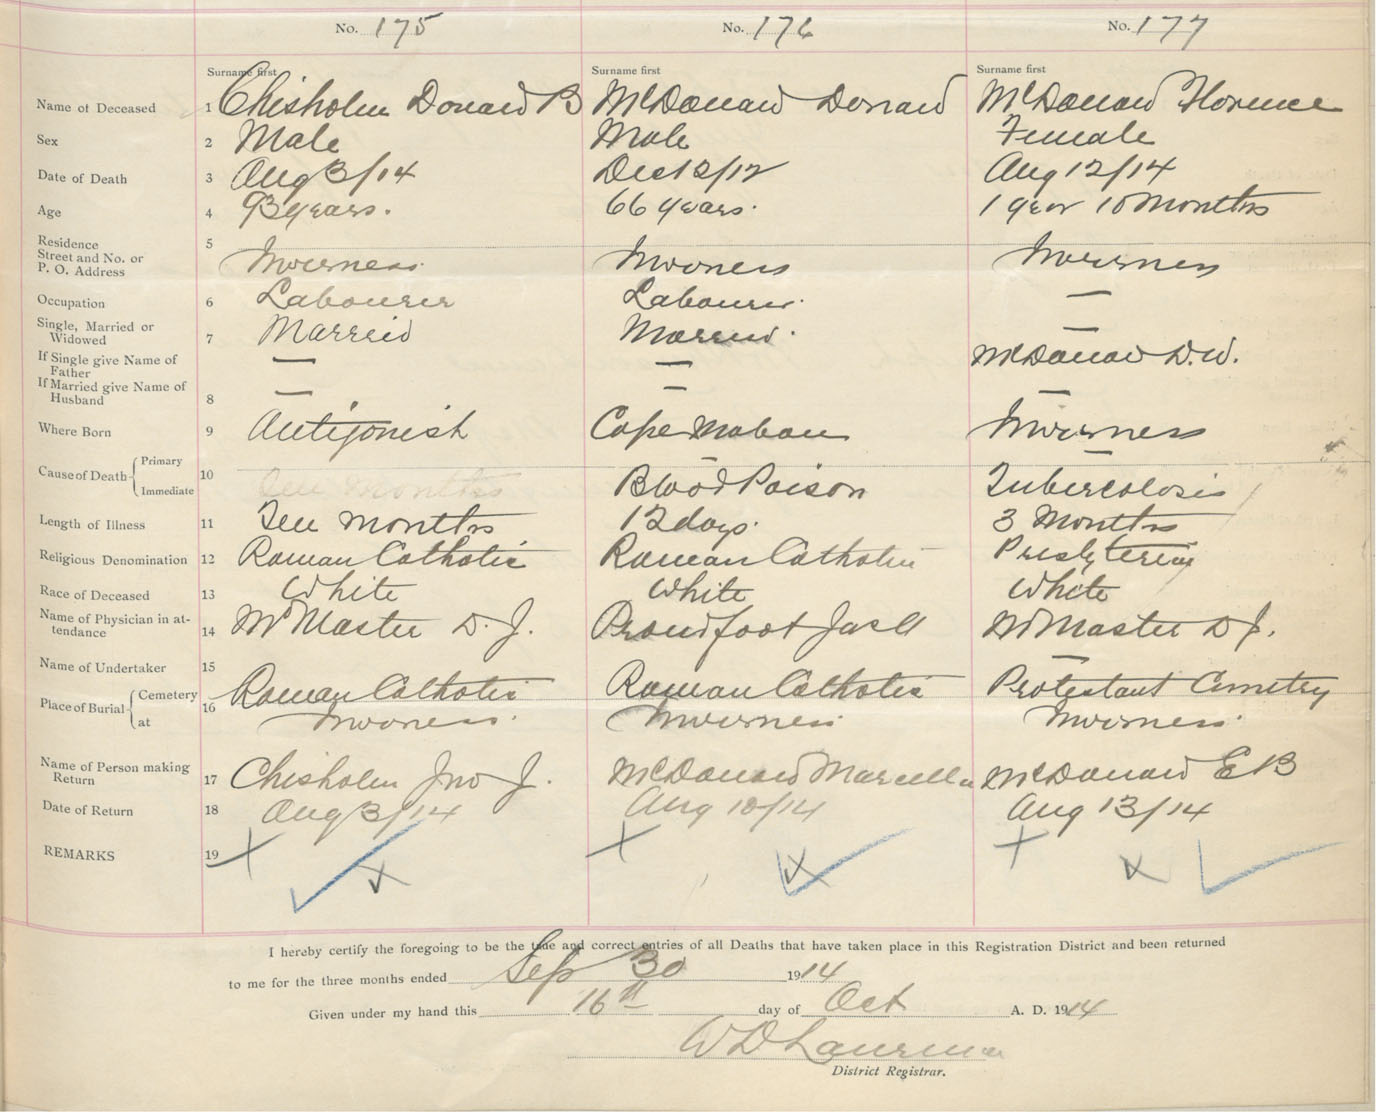 No. 175 No. 176 No. 177
Surname first Surname first Surname first
Name of Deceased 1 Chisholm Donald B McDonald Donald McDonald Florence
Sex 2 Male Male Female
Date of Death 3 Aug 3/14 Dec 12/12 Aug 12/14
Age 4 93 years. 66 years. 1 year 10 Months
Residence 5
Street and No. or
P. O. Address Inverness Inverness Inverness
Occupation 6 Labourer Labourer. —
Single, Married or
Widowed 7 Married Married. —
If Single give Name of
Father — — McDonald D.W.
If Married give Name of
Husband 8 — — —
Where Born 9 Antigonish Cape Mabou Inverness
Cause of Death Primary 10 — —
Immediate Ten Months Blood Poison Tubercolosis
Length of Illness 11 Ten months 12 days. 3 Months
Religious Denomination 12 Roman Catholic Roman Catholic Presbyterian
Race of Deceased 13 White White White
Name of Physician in at-
tendance 14 McMaster D. J. Proudfoot Jas A McMaster D J.
Name of Undertaker 15 —
Place of Burial Cemetery Roman Catholic Roman Catholic Protestant Cemetry
at 16 Inverness. Inverness. Inverness.
Name of Person making
Return 17 Chisholm Jno J. McDonald Marcella McDonald E B
Date of Return 18 Aug 3/14 Aug 10/14 Aug 13/14
REMARKS 19
I hereby certify the foregoing to be the true and correct entries of all Deaths that have taken place in this Registration District and been returned
to me for the three months ended Sep 30 1914
Given under my hand this 16th day of Oct A. D. 1914
W D
District Registrar.